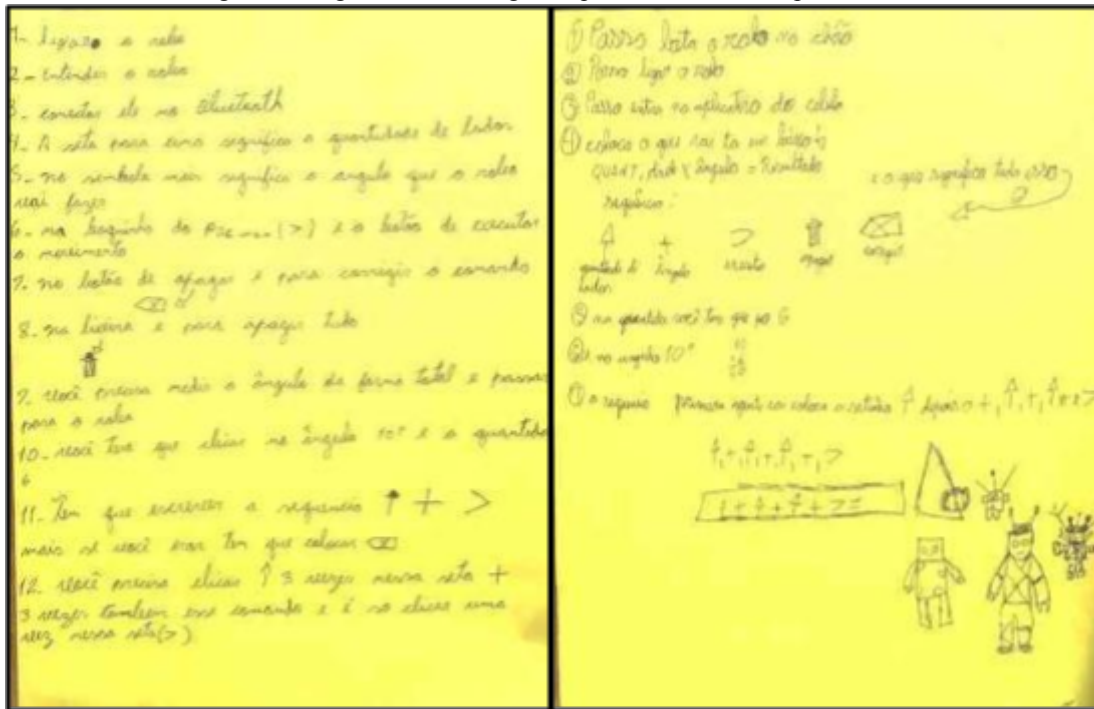 1- ligar o robo
2- entender o robo
3- conectar ele no Bluetooth
4- A seta para cima significa a quantidade de lados
5- no simbolo mais significa o angulo que o robo
vai fazer
6- na (>) é o botão de executar
o movimento
7- no botão de apagar é para corrigir o comando
8- na lixeira é para apagar tudo
9- você precisa medir o ângulo da forma total e passar
para o robo
10- você tem que clicar no ângulo 10° e a quantidade
6
11- Tem que escrever a sequencia ↑ + >
mais se você errar tem que colocar ⌫
12- você precisa clicar ↑ 3 vezes nessa seta +
3 vezes tambem esse comando e é só clicar uma
vez nessa seta (>)
① Passo bota o robo no chão
② Passo ligar o robo
③ Passo entra no aplicativo do celular
④ coloca o que vai ta em baixo
QUANT, ângulo = Resultado
e o que significa tudo isso
sequencia:
↑ + >
quantidade de ângulo
lados
⑤ na quantidade você tem que por 6
⑥ no angulo 10°
⑦ a sequencia coloca a setinha ↑ depois o +, ↑, +, ↑ + e >
↑, +, ↑, +, ↑, +, >
↑ + ↑ + ↑ + > =